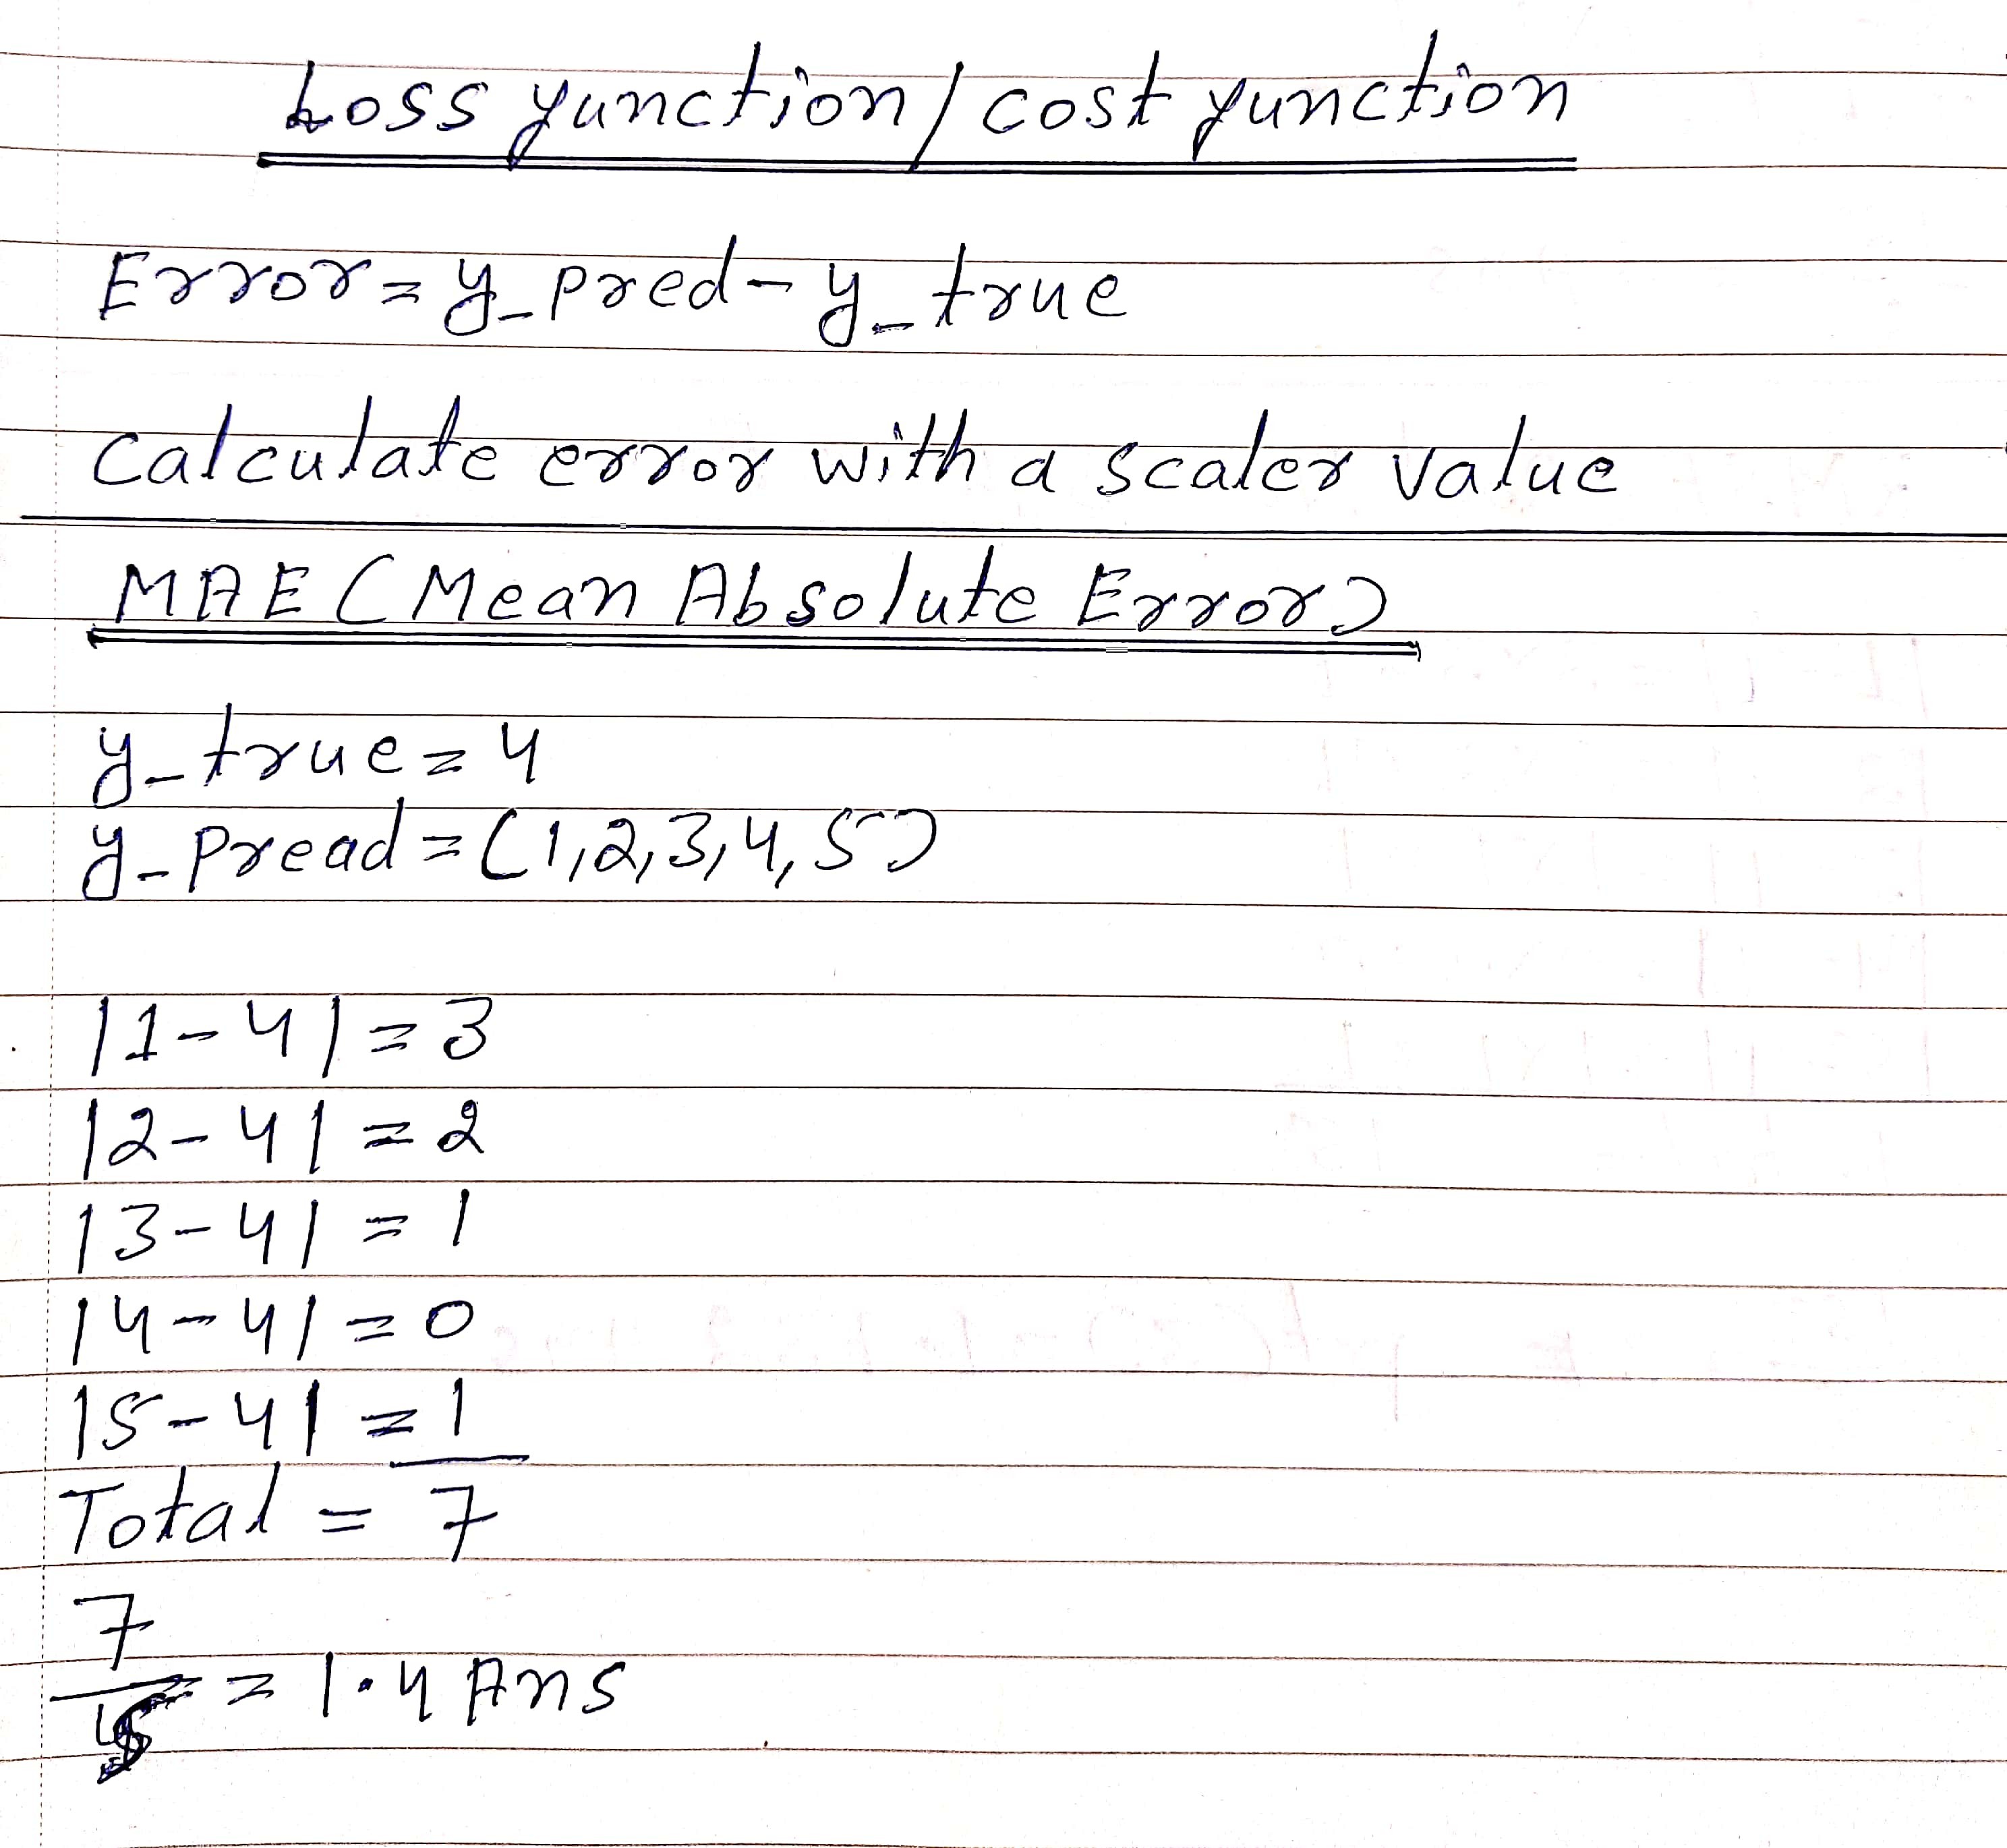 Loss function/cost function
Error=y_pred-y_true
calculate error with a scaler value
MAE (Mean Absolute Error)
y_true=4
y_pread=(1,2,3,4,5)
|1-4|=3
|2-4|=2
|3-4|=1
|4-4|=0
|5-4|=1
Total=7
7
5 = 1.4 Ans